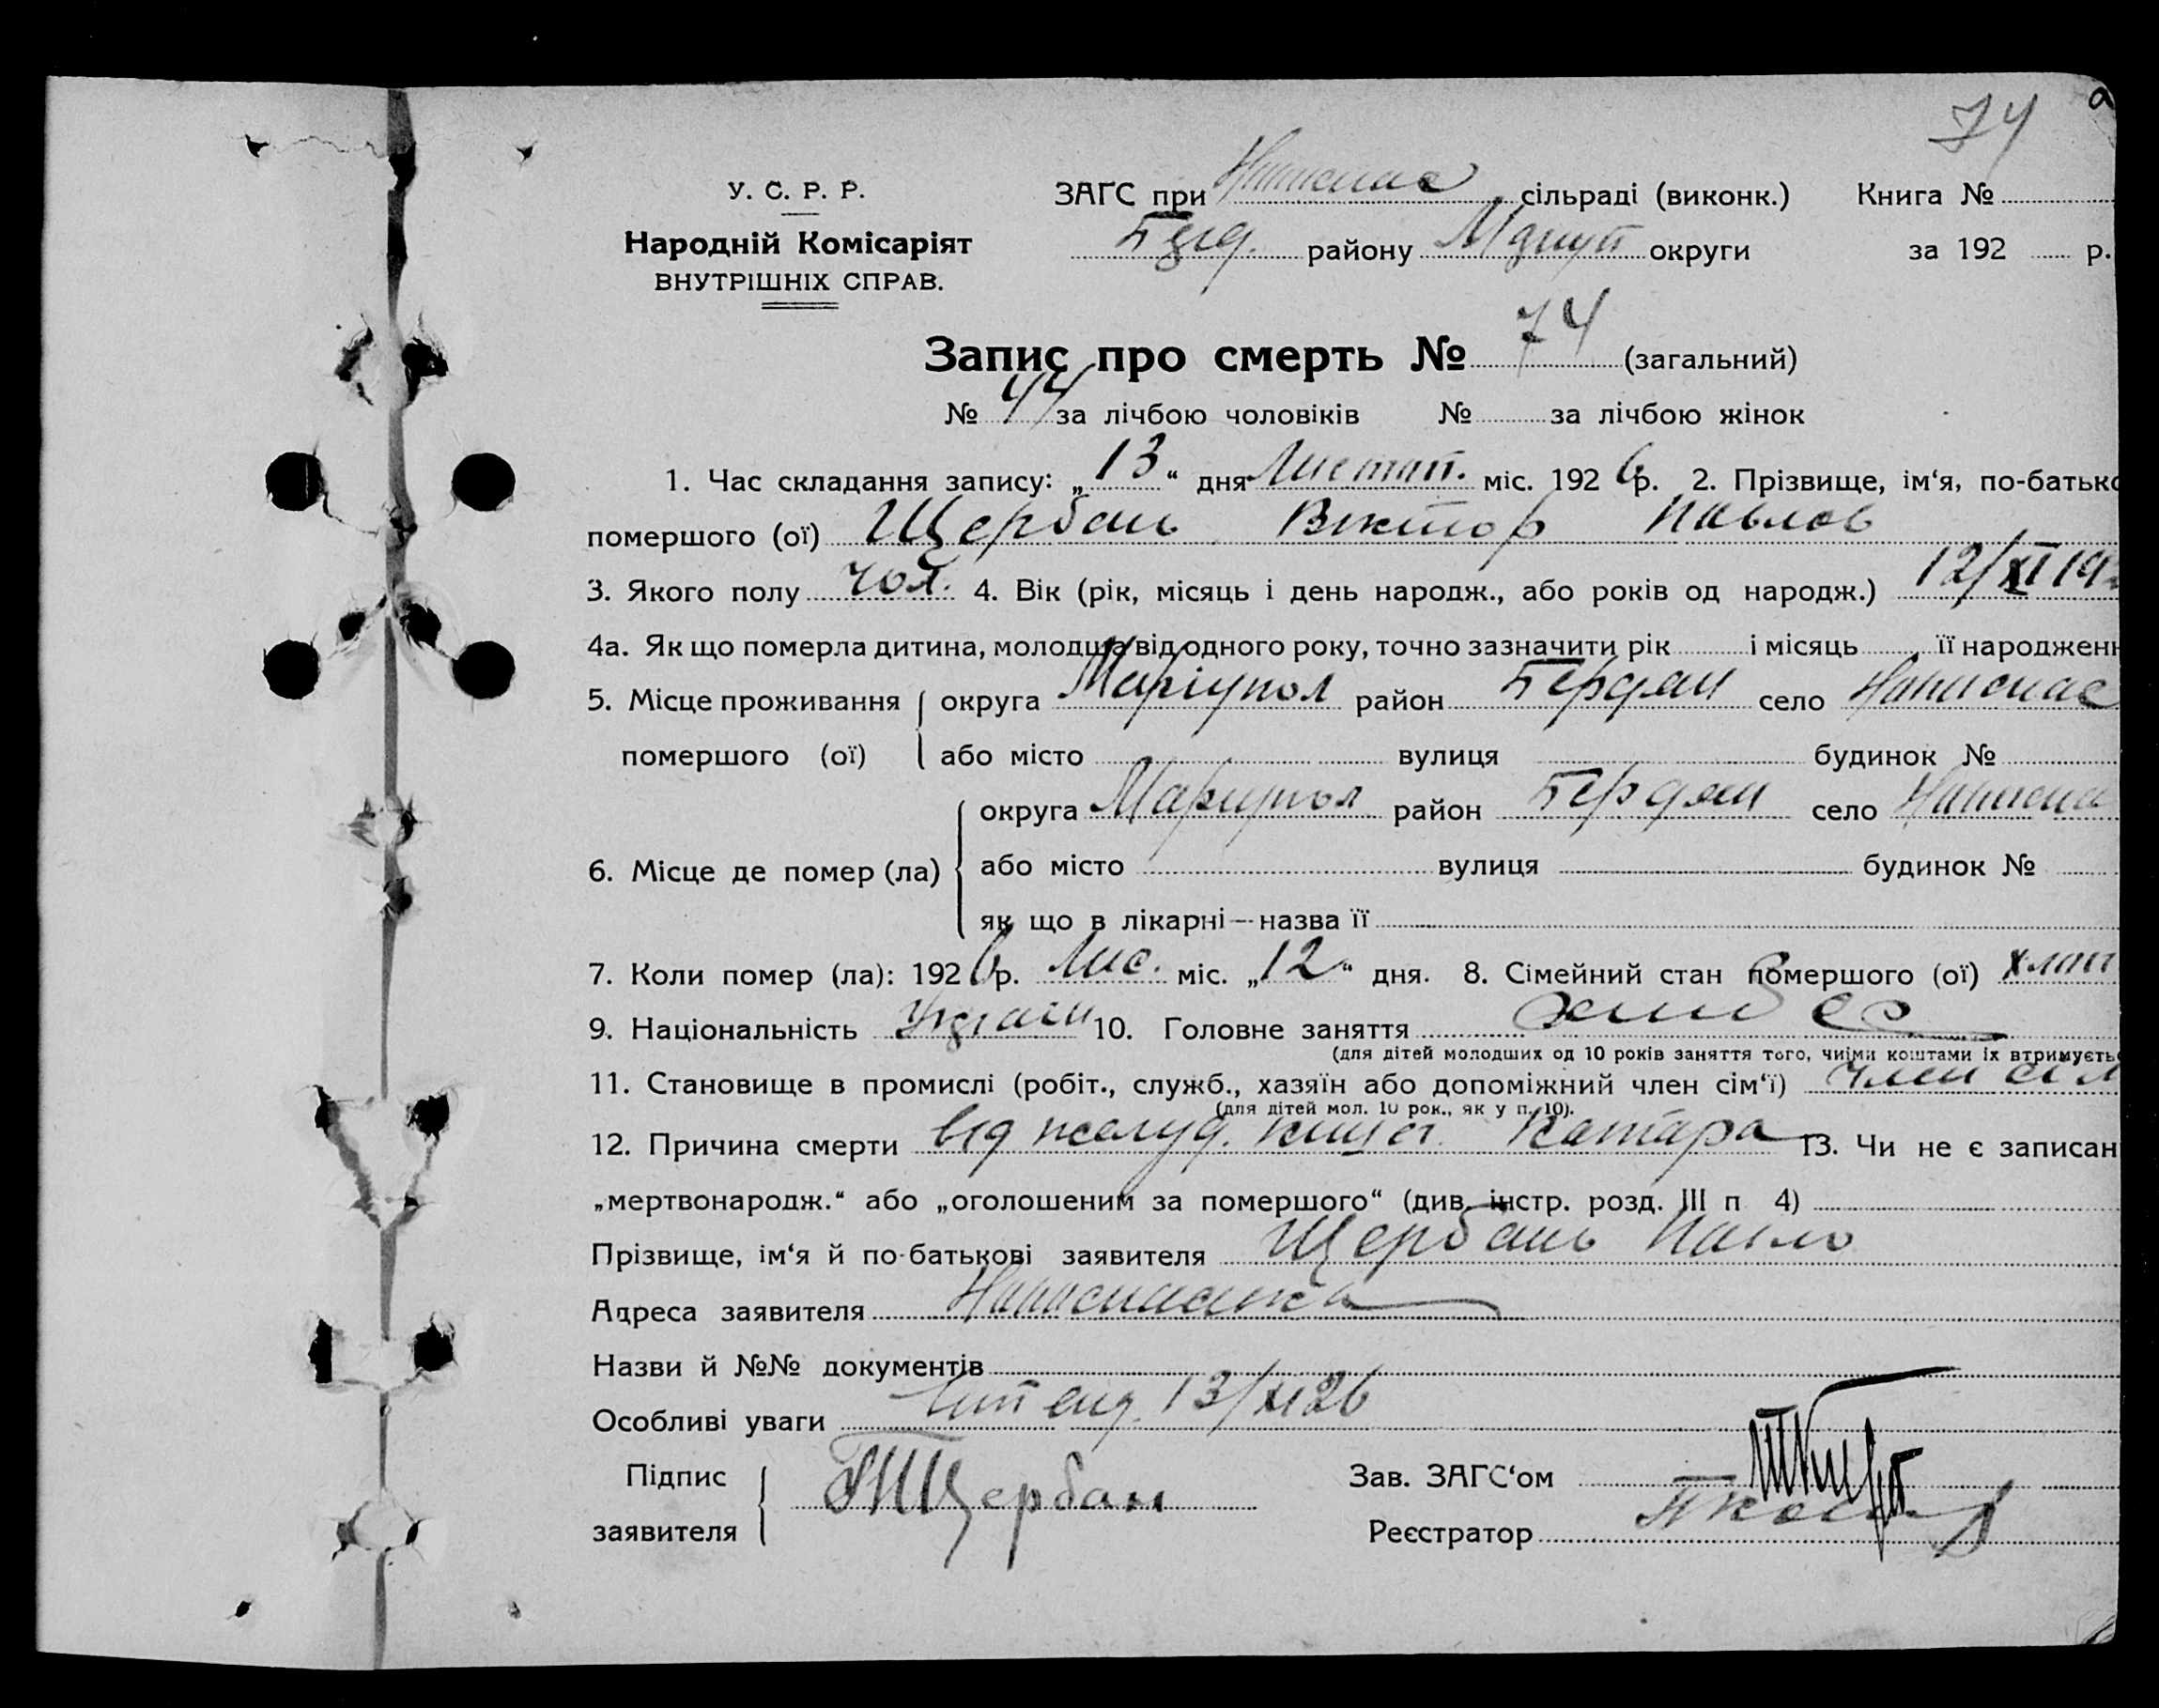 74
У. С. Р. Р.
Народній Комісаріят
ВНУТРІШНІХ СПРАВ.
ЗАГС при сільраді (виконк.) Книга №
району округи за 192 р.
Запис про смерть № 74 (загальний)
№ 44 за лічбою чоловіків № за лічбою жінок
1. Час складання запису: „13“ дня Листоп. міс. 1926 р. 2. Прізвище, ім‘я, по-батько
помершого (ої) Щербань Віктор Павлов
3. Якого полу чол. 4. Вік (рік, місяць і день народж., або років од народж.) 12/XI 19
4а. Як що померла дитина, молодша від одного року, точно зазначити рік і місяць її народжен
5. Місце проживання помершого (ої) округа Маріупол район Бердян село
або місто вулиця будинок №
6. Місце де помер (ла) округа Маріупол район Бердян село
або місто вулиця будинок №
як що в лікарні—назва її
7. Коли помер (ла): 1926 р. Лис. міс. „12“ дня. 8. Сімейний стан помершого (ої) хлоп
9. Національність 10. Головне заняття
(для дітей молодших од 10 років заняття того, чиїми коштами їх втримуєть
11. Становище в промислі (робіт., служб., хазяїн або допоміжний член сім‘ї) член сім
(для дітей мол. 10 рок., як у п. 10).
12. Причина смерти від желуд. Катара 13. Чи не є записан
„мертвонародж.“ або „оголошеним за помершого“ (див. інстр. розд. III п 4)
Прізвище, ім‘я й по-батькові заявителя Щербань Павло
Адреса заявителя
Назви й №№ документів
Особливі уваги 13/XI 26
Підпис заявителя Щербан
Зав. ЗАГС‘ом
Реєстратор